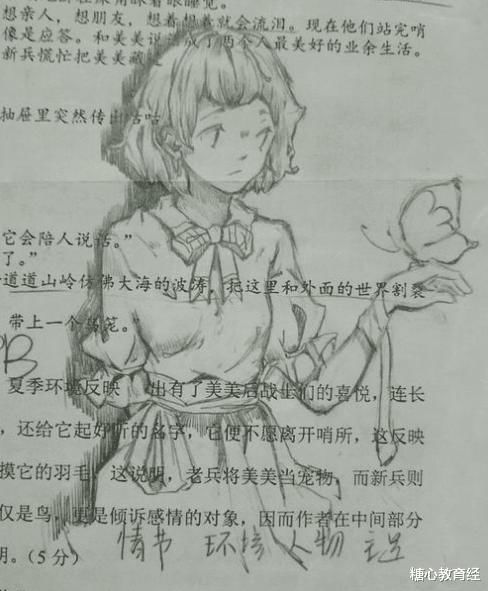 想亲人，想朋友，想着想着就会流泪。现在他们站完哨
像是应答。和美美说话成了两个人最美好的业余生活。
新兵慌忙把美美藏
抽屉里突然传出咕咕
它会陪人说话。”
了。”
道道山岭仿佛大海的波涛，把这里和外面的世界割裂
带上一个鸟笼。
B
夏季环境反映 出有了美美后战士们的喜悦，连长
，还给它起好听的名字，它便不愿离开哨所，这反映
摸它的羽毛，这说明，老兵将美美当宠物，而新兵则
仅是鸟，更是倾诉感情的对象，因而作者在中间部分
明。（5分）
情节 环境 人物 主
糖心教育经